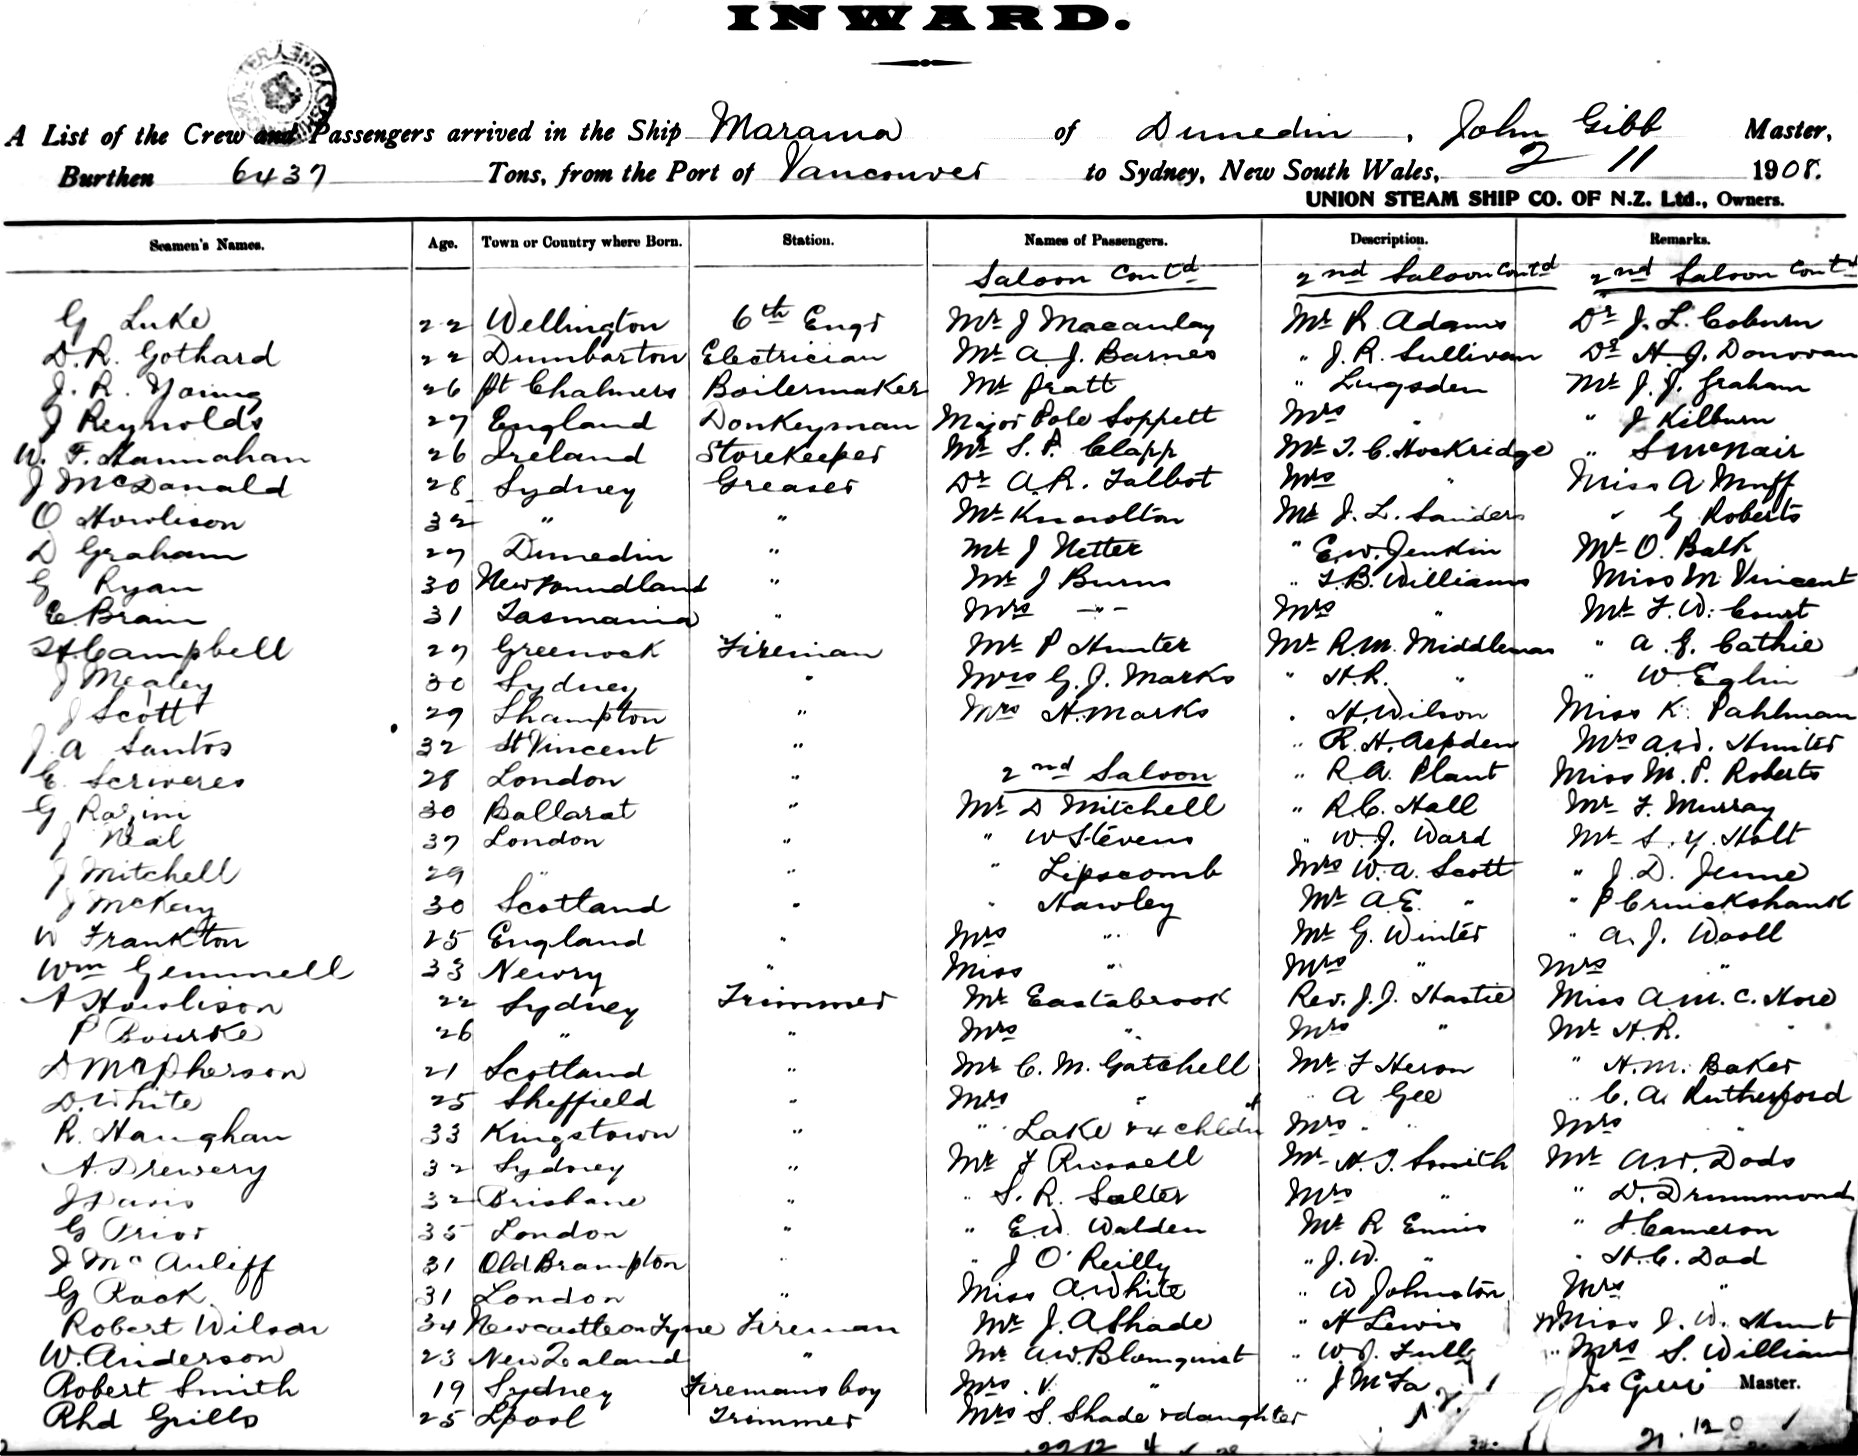 INWARD.
A List of the Crew and Passengers arrived in the Ship Marama of Dunedin, John Gibb Master,
Burthen 6437 Tons, from the Port of Vancouver to Sydney, New South Wales, 2 11 1908.
UNION STEAM SHIP CO. OF N.Z. Ltd., Owners.
Seamen's Names. Age. Town or Country where Born. Station. Names of Passengers. Description. Remarks.
Saloon Contd 2nd Saloon Contd 2nd Saloon Contd
G Luke 22 Wellington 6th Engr Mr J Macaulay Mr R. Adams Dr J. L. Coburn
D. R. Gothard 22 Dumbarton Electrician Mr A. J. Barnes " J. R. Sullivan Dr H. J. Donovan
J. R. Young 26 Pt Chalmers Boilermaker Mr Pratt " Lugsden Mr J. J. Graham
J Reynolds 27 England Donkeyman Major Pole Soppett Mrs " " J Kilburn
W. F. Hannahan 26 Ireland Storekeeper Mr S. P. Clapp Mr T. C. Hockridge " S McNair
J McDonald 28 Sydney Greaser Dr A. R. Talbot Mrs " Miss A Muff
O Howlison 32 " " Mr Knowlton Mr J. L. Sanders " G Roberts
D Graham 27 Dunedin " Mr J Netter " E. W. Jenkin Mr O. Balk
G Ryan 30 Newfoundland " Mr J Burns " T. B. Williams Miss M Vincent
E Brain 31 Tasmania " Mrs " Mrs " Mr F. W. Court
H. Campbell 27 Greenock Fireman Mr P Hunter Mr R. M. Middlemas " A. G. Cathie
J Mealey 30 Sydney " Mrs G. J. Marks " H. R. " " W. Eglin
J Scott 29 Shampton " Mrs H. Marks " H. Wilson Miss K. Pahlman
J. A Santos 32 St Vincent " " R. H. Aspden Mrs A. W. Hunter
E. Scriveres 28 London " 2nd Saloon " R. A. Plant Miss M. P. Roberts
G 30 Ballarat " Mr D Mitchell " R. C. Hall Mr F. Murray
J Neal 37 London " " W Stevens " W. J. Ward Mr S. Y. Holt
J Mitchell 29 " " " Lipscomb Mrs W. A. Scott " J. D. Jenne
J McKery 30 Scotland " " Hawley Mr A. E. " " P Cruickshank
W Frankton 25 England " Mrs " Mr G. Winter " A. J. Wooll
Wm Gemmell 33 Newry " Miss " Mrs " Mrs "
A Howlison 22 Sydney Trimmer Mr Eastabrook Rev. J. J. Hastie Miss A. M. C. Hore
P Bourke 26 " " Mrs " Mrs " Mr H. R. "
D McPherson 21 Scotland " Mr C. M. Gatchell Mr F Heron " H. M. Baker
D. White 25 Sheffield " Mrs " " A Gee " C. A. Rutherford
R. Haughan 33 Kingstown " " Lake & 4 chldn Mrs " Mrs "
A. Drewery 32 Sydney " Mr F Russell Mr H. T. Smith Mr A. W. Dods
J Davis 32 Brisbane " " S. R. Salter Mrs " " D. Drummond
G Prior 35 London " " E. W. Walden Mr R Ennis " A. Cameron
J McAuliff 31 Old Brampton " " J O'Reilly " J. W. " " H. C. Dod
G Rock. 31 London " Miss A White " W Johnston Mrs "
Robert Wilson 34 Newcastle on Tyne Fireman Mr J. A Shade " A Lewis Miss J. W. Hunt
W. Anderson 23 New Zealand " Mr A. W. Blomquist " W. J. Tully " Mrs S. William
Robert Smith 19 Sydney Firemans boy Mrs V. " " J McFa Jno Gibb Master.
Rhd Grills 25 Lpool Trimmer Mrs S. Shade & daughter